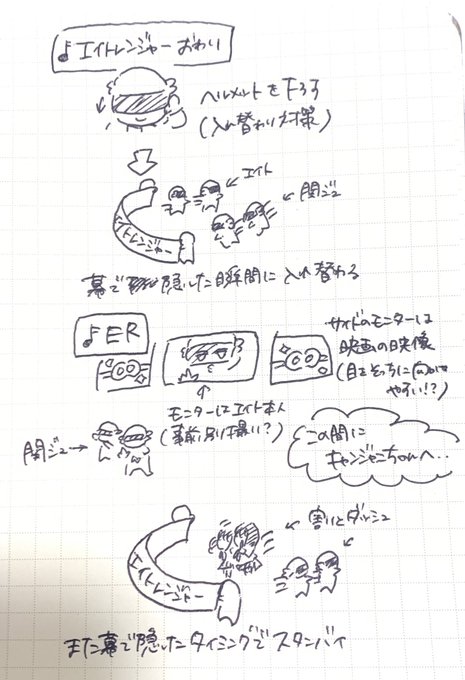 ♪エイトレンジャー おわり
ヘルメットを下ろす
(入れ替わり対策)
←エイト
←関ジュ
エイトレンジャー
幕で隠した瞬間に入れ替わる
♪ER
サイドのモニターは
映画の映像
(目をそっちに
やすい!?)
モニターはエイト本人
(事前別撮り?)
関ジュ→
この間に
キャンジャニちゃんへ…
←割とダッシュ
エイトレンジャー
また幕で隠したタイミングでスタンバイ